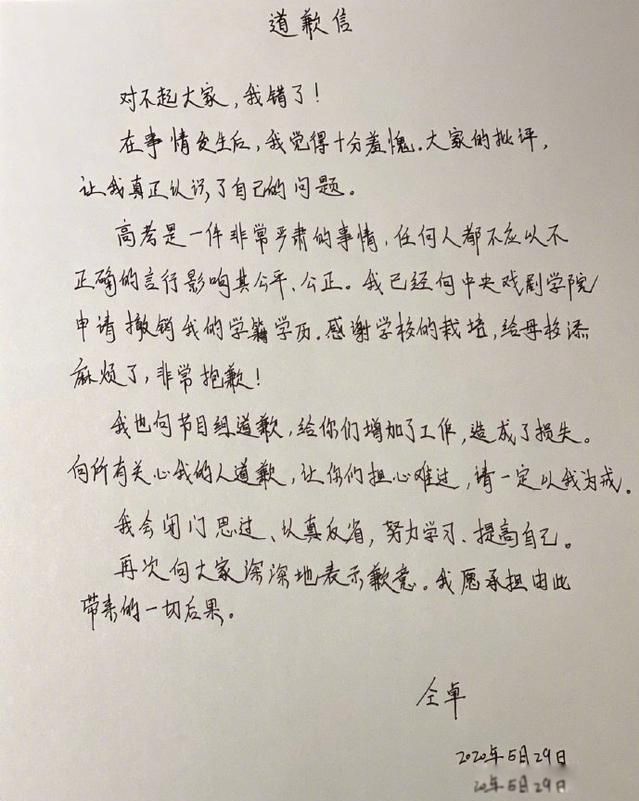 道歉信
对不起大家，我错了！
在事情发生后，我觉得十分羞愧。大家的批评，
让我真正认识了自己的问题。
高考是一件非常严肃的事情，任何人都不应以不
正确的言行影响其公平、公正。我已经向中央戏剧学院
申请撤销我的学籍学历。感谢学校的栽培，给母校添
麻烦了，非常抱歉！
我也向节目组道歉，给你们增加了工作，造成了损失。
向所有关心我的人道歉，让你们担心难过，请一定以我为戒。
我会闭门思过、认真反省，努力学习、提高自己。
再次向大家深深地表示歉意。我愿承担由此
带来的一切后果。
仝卓
2020年5月29日
20年5月29日